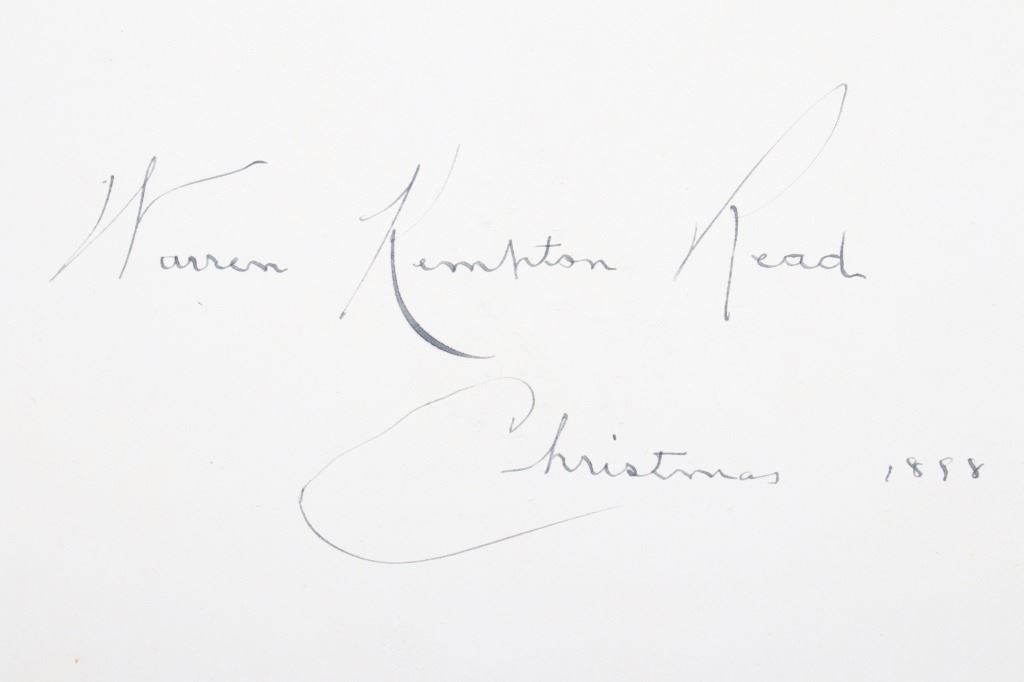 Warren Kempton Read
Christmas 1898